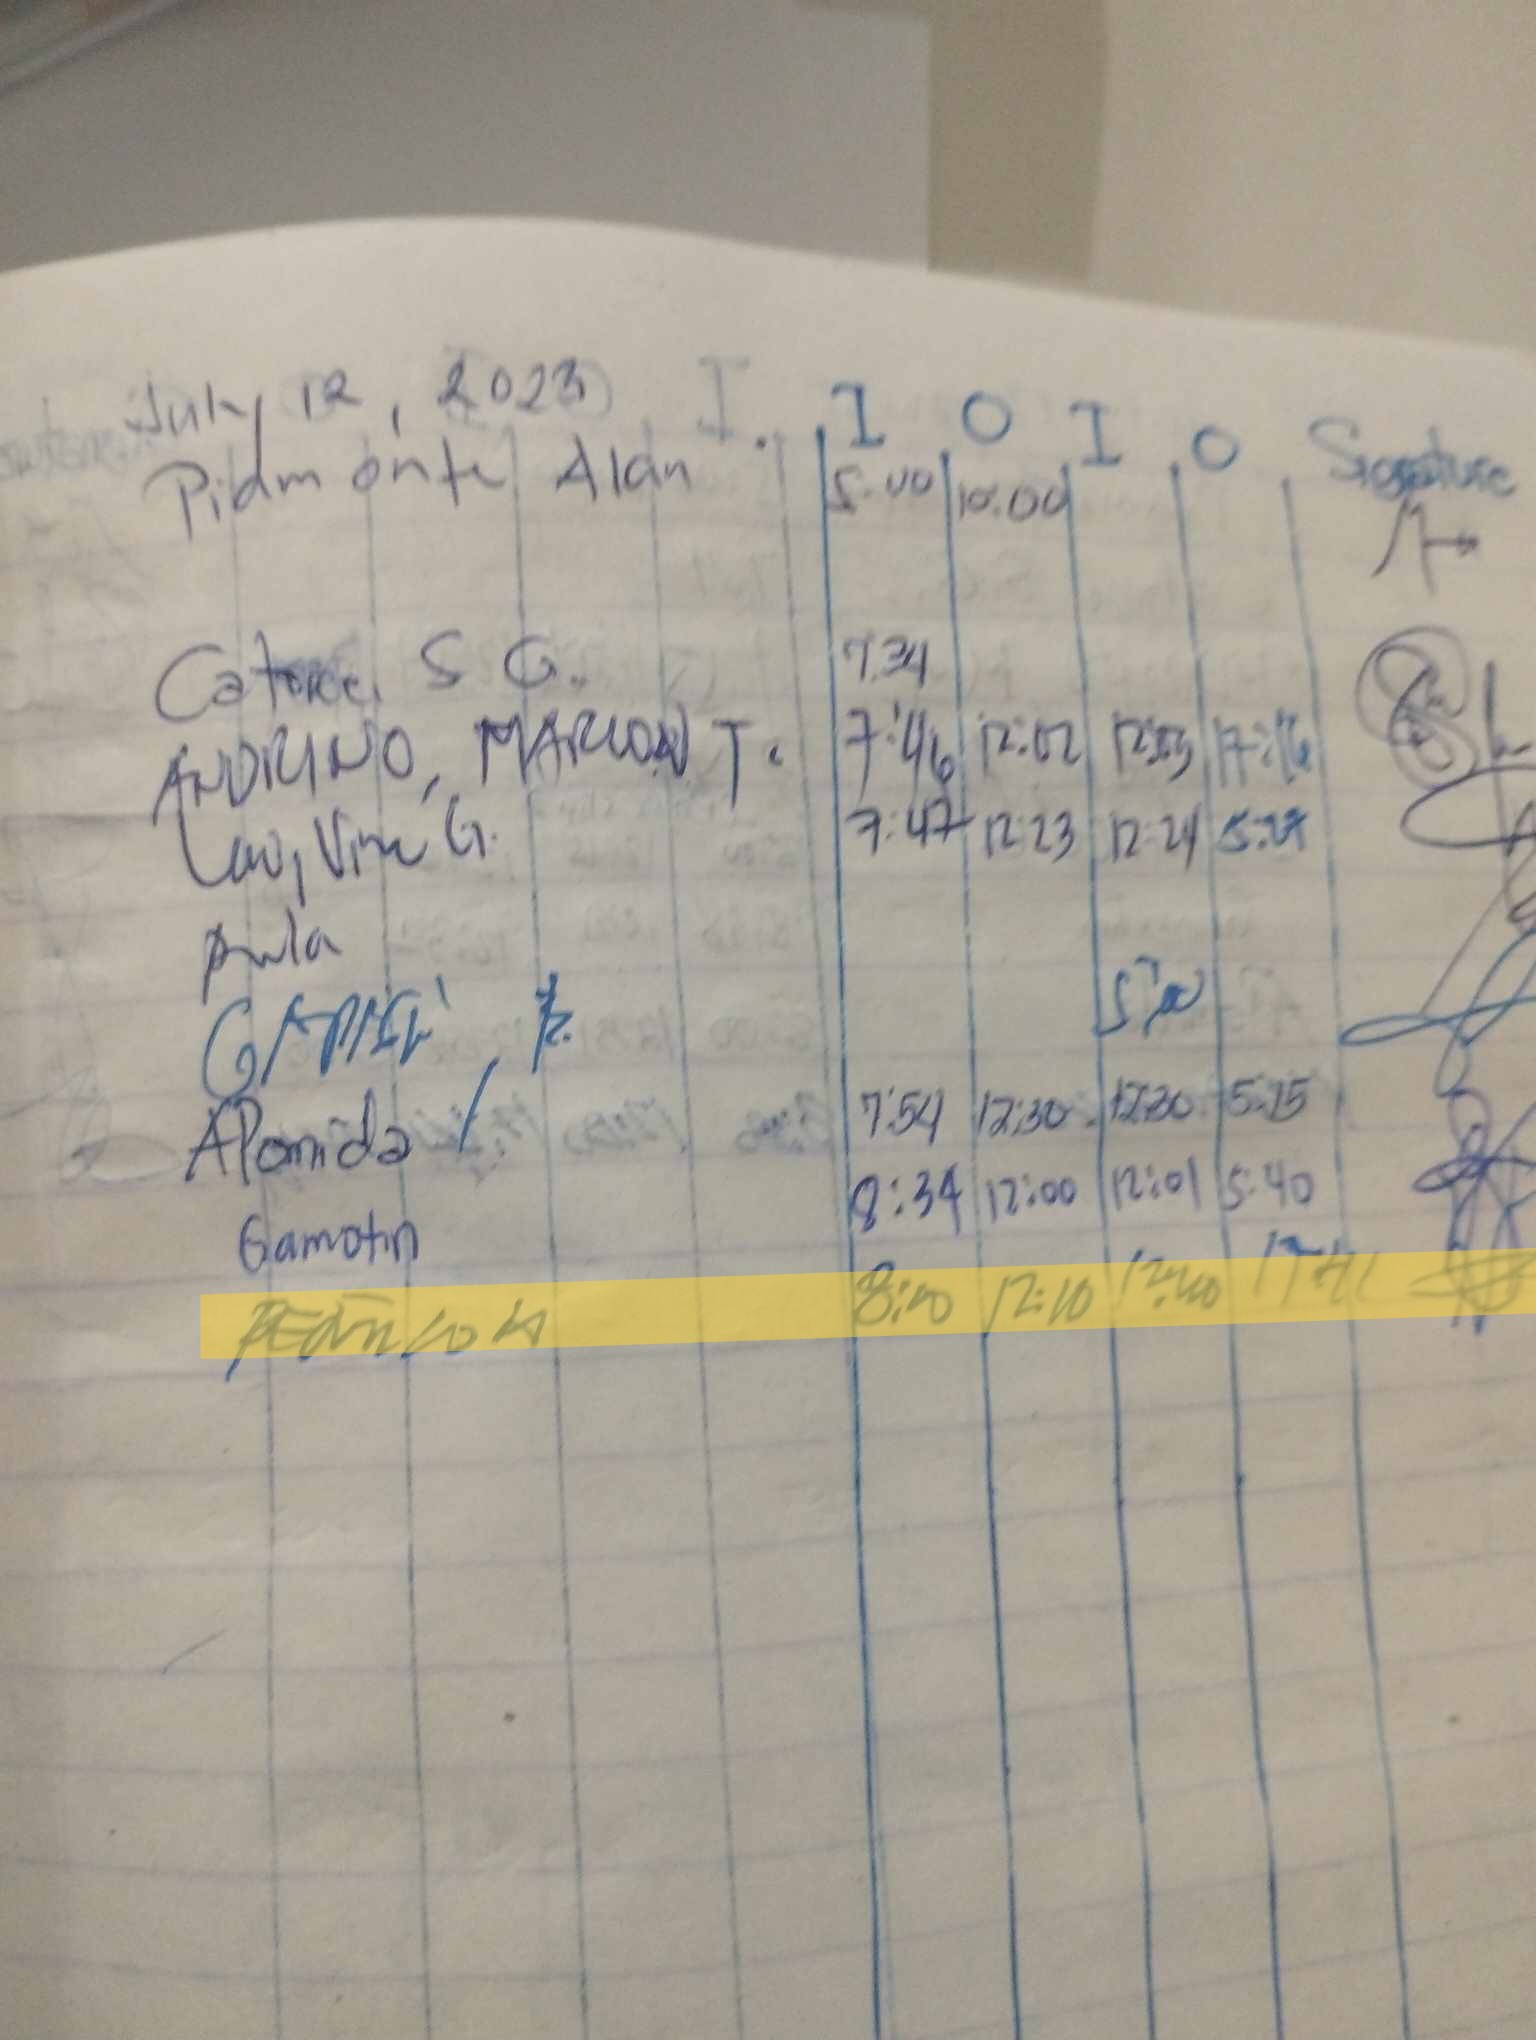 July 12, 2023 I. I O I O Signature
Pidmonte Alan 5:00 10:00
Catorce S G. 7:34
ANDRINO, MARLON T. 7:46 12:02 12:53 17:16
Lao, Vine G. 7:47 12:23 12:24 5:27
Aula
Apomida 7:54 12:30 12:30 5:25
Gamotin 8:34 12:00 12:01 5:40
8:00 12:10 12:40 17:41